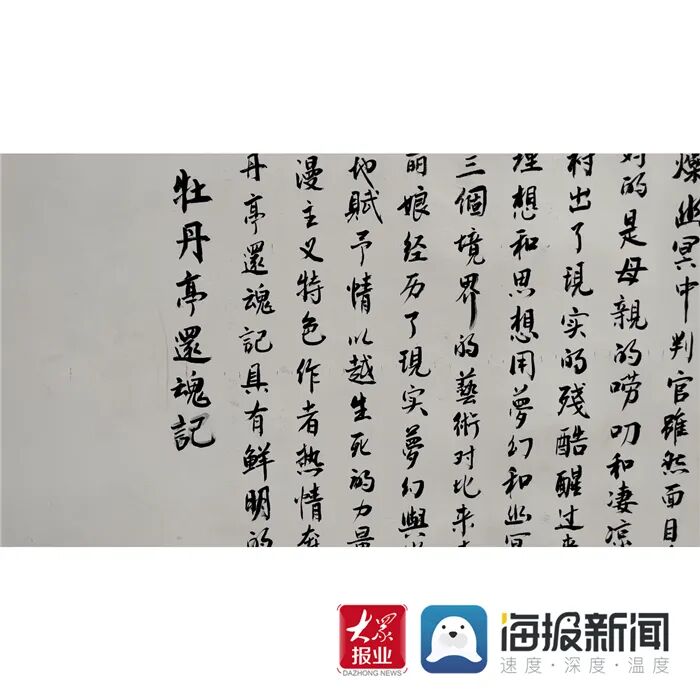 牡丹亭還魂記
丹亭還魂記具有鮮明的
漫主义特色作者热情奔
地賦予情以越生死的力量
丽娘经历了現实夢幻與
三個境界的藝術对比来
理想和思想用夢幻和幽冥
衬出了現实的残酷醒过来
对的是母親的唠叨和凄凉
爍幽冥中判官雖然面目
大眾
报业
DAZHONG NEWS
海报新闻
速度·深度·温度